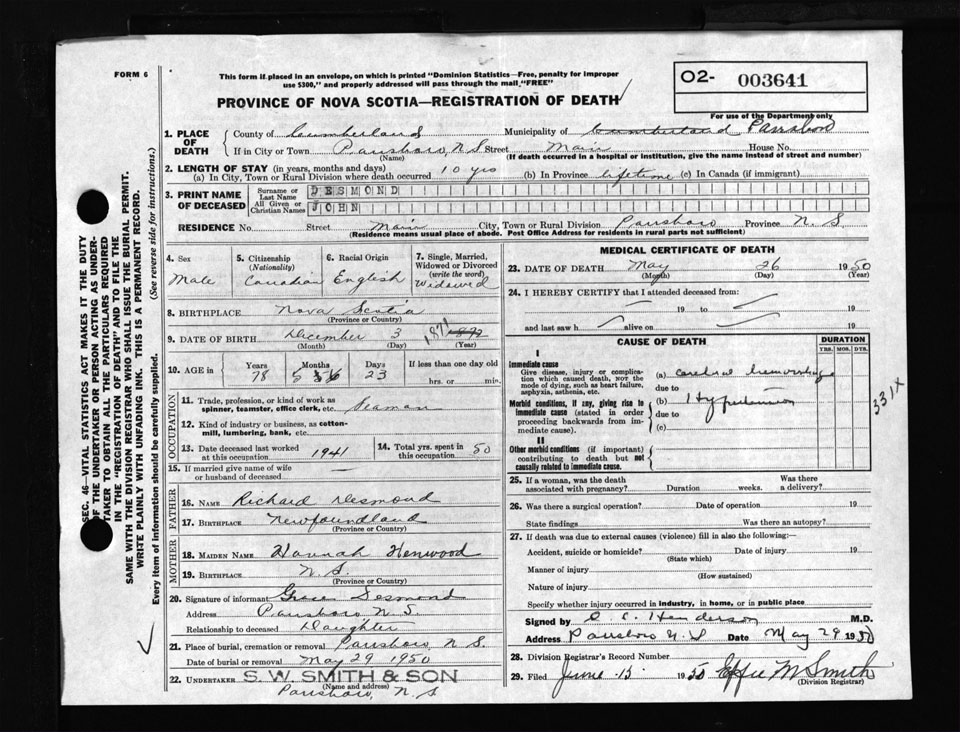 FORM 6
This form if placed in an envelope, on which is printed "Dominion Statistics—Free, penalty for improper
use $300," and properly addressed will pass through the mail "FREE"
PROVINCE OF NOVA SCOTIA—REGISTRATION OF DEATH
02- 003641
For use of the Department only
1. PLACE OF DEATH
County of Cumberland Municipality of Cumberland Parrsboro
If in City or Town Parrsboro, N.S. Street Main House No.
(Name) (If death occurred in a hospital or institution, give the name instead of street and number)
2. LENGTH OF STAY (in years, months and days)
(a) In City, Town or Rural Division where death occurred 10 yrs (b) In Province lifetime (c) In Canada (if immigrant)
3. PRINT NAME OF DECEASED
Surname or Last Name DESMOND
All Given or Christian Names JOHN
RESIDENCE No. Street Main City, Town or Rural Division Parrsboro Province N.S.
(Residence means usual place of abode. Post Office Address for residents in rural parts not sufficient)
4. Sex Male
5. Citizenship (Nationality) Canadian
6. Racial Origin English
7. Single, Married, Widowed or Divorced (write the word) Widowed
8. BIRTHPLACE Nova Scotia
(Province or Country)
9. DATE OF BIRTH December 3 1871
(Month) (Day) (Year)
10. AGE in Years Months Days If less than one day old
78 5 23 hrs. or min.
OCCUPATION
11. Trade, profession, or kind of work as spinner, teamster, office clerk, etc. Seaman
12. Kind of industry or business, as cotton-mill, lumbering, bank, etc.
13. Date deceased last worked at this occupation 1941
14. Total yrs. spent in this occupation 50
15. If married give name of wife or husband of deceased —
FATHER
16. NAME Richard Desmond
17. BIRTHPLACE Newfoundland
(Province or Country)
MOTHER
18. MAIDEN NAME Hannah Henwood
19. BIRTHPLACE N.S.
(Province or Country)
20. Signature of informant Grace Desmond
Address Parrsboro N.S.
Relationship to deceased Daughter
21. Place of burial, cremation or removal Parrsboro, N.S.
Date of burial or removal May 29 1950
22. UNDERTAKER S. W. SMITH & SON
(Name and address)
Parrsboro, N.S
MEDICAL CERTIFICATE OF DEATH
23. DATE OF DEATH May 26 1950
(Month) (Day) (Year)
24. I HEREBY CERTIFY that I attended deceased from:
19 to 19
and last saw h alive on 19
CAUSE OF DEATH
DURATION
YRS. MOS. DYS.
I
Immediate cause
Give disease, injury or complication which caused death, NOT the mode of dying, such as heart failure, asphyxia, asthenia, etc.
(a) cerebral hemorrhage
due to
Morbid conditions, if any, giving rise to immediate cause (stated in order proceeding backwards from immediate cause).
(b) Hypertension
due to
(c)
331X
II
Other morbid conditions (if important) contributing to death but not causally related to immediate cause.
25. If a woman, was the death associated with pregnancy? Duration weeks. Was there a delivery?
26. Was there a surgical operation? Date of operation 19
State findings Was there an autopsy?
27. If death was due to external causes (violence) fill in also the following:—
Accident, suicide or homicide? Date of injury 19
(State which)
Manner of injury
(How sustained)
Nature of injury
Specify whether injury occurred in industry, in home, or in public place
Signed by C. C. Henderson M.D.
Address Parrsboro N.S Date May 29 1950
28. Division Registrar's Record Number
29. Filed June 15 1950 Effie M Smith
(Division Registrar)
SEC. 46—VITAL STATISTICS ACT MAKES IT THE DUTY
OF THE UNDERTAKER OR PERSON ACTING AS UNDER-
TAKER TO OBTAIN ALL THE PARTICULARS REQUIRED
IN THE "REGISTRATION OF DEATH" AND TO FILE THE
SAME WITH THE DIVISION REGISTRAR WHO SHALL ISSUE THE BURIAL PERMIT.
WRITE PLAINLY WITH UNFADING INK. THIS IS A PERMANENT RECORD.
Every item of information should be carefully supplied. (See reverse side for instructions.)